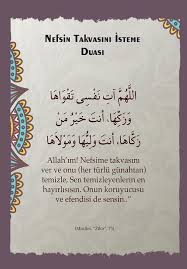 Nefsin Takvasını İsteme
Duası
اللَّهُمَّ آتِ نَفْسِي تَقْوَاهَا
وَزَكِّهَا، أَنتَ خَيْرُ مَنْ
زَكَّاهَا، أَنتَ وَلِيُّهَا وَمَوْلَاهَا
Allah'ım! Nefsime takvasını
ver ve onu (her türlü günahtan)
temizle. Sen temizleyenlerin en
hayırlısısın. Onun koruyucusu
ve efendisi de sensin."
(Müslim, "Zikir", 73)